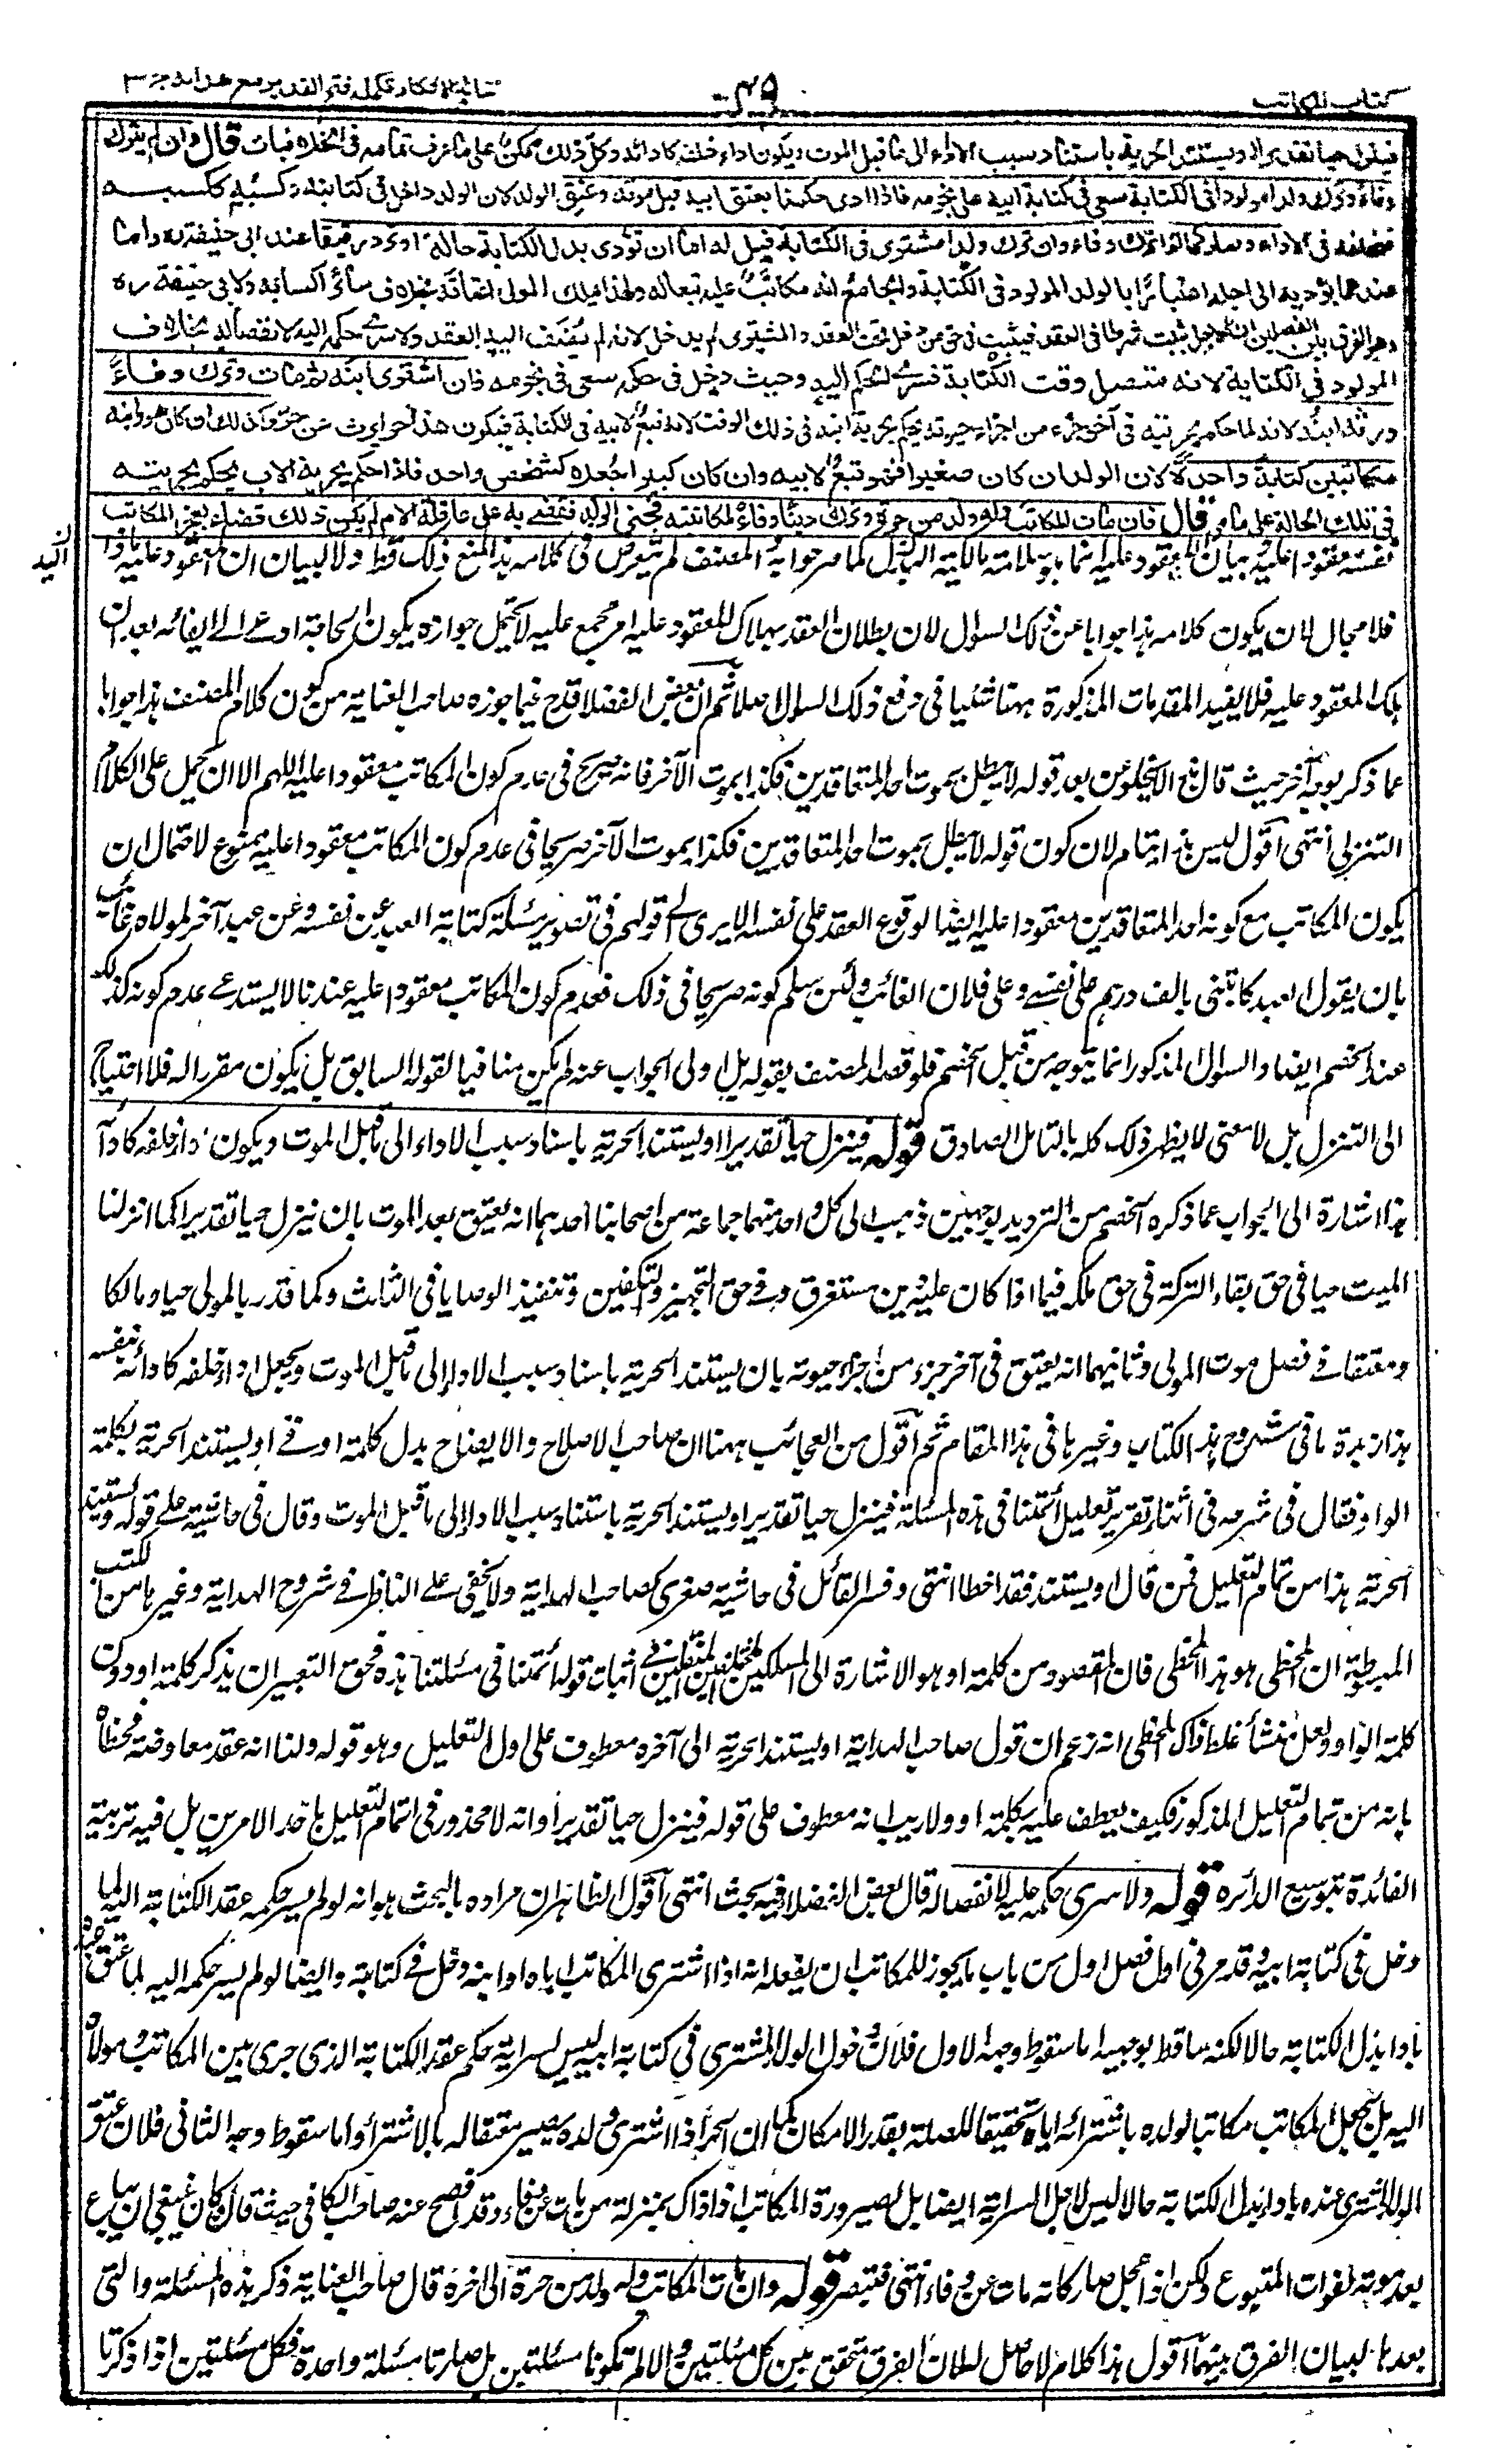 كتاب المكاتب
٤٥
نتائج الافكار تكملة فتح القدير مع هدايه جز ٣
فينزل حيا تقديرا او يستند الحرية باستناد سبب الاداء الى ما قبل الموت ويكون اداء خلفه كادائه وكل ذلك ممكن على ما عرف تمامه فى الخلافيات قال وان لم يترك
وفاءً وترك ولدا مولودا فى الكتابة سعى فى كتابة ابيه على نجومه فاذا ادى حكمنا بعتق ابيه قبل موته وعتق الولد لان الولد داخل فى كتابته وكسبه ككسبه
فيخلفه فى الاداء وصار كما اذا ترك وفاء وان ترك ولدا مشترى فى الكتابة قيل له اما ان تؤدى بدل الكتابة حالة او ترد رقيقا عند ابى حنيفة ره واما
عندهما يؤديه الى اجله اعتبارًا بالولد المولود فى الكتابة والجامع انه مكاتب عليه تبعا له ولهذا يملك المولى اعتاقه بخلاف سائر اكسابه ولابى حنيفة ره
وهو الفرق بين الفصلين ان الاجل يثبت شرطا فى العقد فيثبت فى حق من دخل تحت العقد والمشترى لم يدخل لانه لم يضف اليه العقد ولا يسرى حكمه اليه لانفصاله بخلاف
المولود فى الكتابة لانه متصل وقت الكتابة فيسرى الحكم اليه وحيث دخل فى حكمه سعى فى نجومه فان اشترى ابنه ثم مات وترك وفاءً
ورثه ابنه لانه لما حكم بحريته فى آخر جزء من اجزاء حيوته يحكم بحرية ابنه فى ذلك الوقت لانه تبع لابيه فى الكتابة فيكون هذا حرا يرث عن حر وكذلك ان كان هو وابنه
مكاتبين كتابة واحدة لان الولد ان كان صغيرا فهو تبع لابيه وان كان كبيرا جعلا كشخص واحد فاذا حكم بحرية الاب يحكم بحريته
فى تلك الحالة على ما مر قال فان مات المكاتب وله ولد من حرة وترك دينا وفاءً لمكاتبته فجنى الولد فقضى به على عاقلة الام لم يكن ذلك قضاء بعجز المكاتب
نفسه معقودا عليه بيان ان المعقود عليه انما هو سلامة مالكية اليد كما صرحوا به المصنف لم يتعرض فى كلامه هذا لمنع ذلك قط ولا لبيان ان المعقود عليه ماذا
فلا مجال لان يكون كلامه هذا جوابا عن ذلك السؤال لان بطلان العقد بهلاك المعقود عليه امر مجمع عليه لا يحتمل جوازه بكون الحاجة ادعى الى ايفائه بعد ان
هلك المعقود عليه فلا يفيد المقدمات المذكورة ههنا شيئا فى دفع ذلك السؤال اصلا ثم ان بعض الفضلا قدح فيما جوزه صاحب العناية من كون كلام المصنف هذا جوابا
عما ذكر بوجه آخر حيث قال فيه الا يخلو عن بعد قوله لا يبطل بموت احد المتعاقدين فكذا بموت الآخر فانه صريح فى عدم كون المكاتب معقودا عليه اللهم الا ان يحمل على الكلام
التنزلى انتهى اقول ليس هذا بتام لان كون قوله لا يبطل بموت احد المتعاقدين فكذا بموت الآخر صريحا فى عدم كون المكاتب معقودا عليه ممنوع لاحتمال ان
يكون المكاتب مع كونه احد المتعاقدين معقودا عليه ايضا لوقوع العقد على نفسه الا يرى الى قولهم فى تصوير مسئلة كتابة العبد عن نفسه وعن عبد آخر لمولاه غائب
بان يقول العبد كاتبنى بالف درهم على نفسى وعلى فلان الغائب ولئن سلم كونه صريحا فى ذلك فعدم كون المكاتب معقودا عليه عندنا لا يستدعى عدم كونه كذلك
عند الخصم ايضا والسؤال المذكور انما يتوجه من قبل الخصم فلو قصد المصنف بقوله بل اولى الجواب عنه لم يكن منافيا لقوله السابق بل يكون مقررا له فلا احتياج
الى التنزل بل لا معنى له يظهر ذلك كله بالتامل الصادق قوله فينزل حيا تقديرا او يستند الحرية باسناد سبب الاداء الى ما قبل الموت ويكون اداء خلفه كادائه
هذا اشارة الى الجواب عما ذكره الخصم من الترديد بوجهين ذهب الى كل واحد منهما جماعة من اصحابنا احدهما انه يعتق بعد الموت بان ينزل حيا تقديرا كما انزلنا
الميت حيا فى حق بقاء التركة فى حق ملكه فيما اذا كان عليه دين مستغرق وفى حق التجهيز والتكفين وتنفيذ الوصايا فى الثلث وكما قدر بالمولى حيا ومالكا
ومعتقا فى فصل موت المولى وثانيهما انه يعتق فى آخر جزء من اجزاء حيوته بان يستند الحرية باسناد سبب الاداء الى ما قبل الموت ويجعل اداء خلفه كادائه بنفسه
هذا زبدة ما فى شروح هذا الكتاب وغيرها فى هذا المقام ثم اقول من العجائب ههنا ان صاحب الاصلاح والايضاح بدل كلمة او فى او يستند الحرية بكلمة
الواو فقال فى شرحه فى اثناء تقرير تعليل ائمتنا فى هذه المسئلة فينزل حيا تقديرا ويستند الحرية باستناد سبب الاداء الى ما قبل الموت وقال فى حاشيته على قوله ويستند
الحرية هذا من تمام التعليل فمن قال او يستند فقد اخطا انتهى وفسر القائل فى حاشية صغرى كصاحب الهداية ولا يخفى على الناظر فى شروح الهداية وغيرها من الكتب
المبسوطة ان المخطى هو هذا المخطى فان المقصود من كلمة او هو الاشارة الى المسلكين المختلفين المنقلين فى اثبات قول ائمتنا فى مسئلتنا هذه فحق التعبير ان يذكر كلمة او دون
كلمة الواو ولعل منشأ غلط ذاك المخطى انه زعم ان قول صاحب الهداية او يستند الحرية الى آخره معطوف على اول التعليل وهو قوله ولنا انه عقد معاوضة فخطأه
بانه من تمام التعليل المذكور فكيف يعطف عليه بكلمة او ولا ريب انه معطوف على قوله فينزل حيا تقديرا وانه لا محذور فى اتمام التعليل باحد الامرين بل فيه تربية
الفائدة بتوسيع الدائرة قوله ولا سرى حكمه عليه لانفصاله قال بعض الفضلا فيه بحث انتهى اقول الظاهر ان مراده بالبحث هو انه لو لم يسر حكمه عقد الكتابة اليه لما
دخل فى كتابة ابيه وقد مر فى اول فصل اول من باب ما يجوز للمكاتب ان يفعله انه اذا اشترى المكاتب اباه او ابنه دخل فى كتابته وايضا لو لم يسر حكمه اليه لما عتق عنده
باداء بدل الكتابة حالا لكنه ساقط بوجهيه اما سقوط وجهه الاول فلان دخول الولد المشترى فى كتابة ابيه ليس لسراية حكم عقد الكتابة الذى جرى بين المكاتب ومولاه
اليه بل لجعل المكاتب مكاتبا لولده باشترائه اياه تحقيقا للصلة بقدر الامكان كما ان الحر اذا اشترى ولده يصير معتقا له بالاشتراء واما سقوط وجه الثانى فلان عتق
الولد المشترى عنده باداء بدل الكتابة حالا ليس لاجل السراية ايضا بل لصيرورة المكاتب اذ ذاك بمنزلة من مات عن وفاء وقد افصح عنه صاحب الكافى حيث قال وكان ينبغى ان يباع
بعد موته لفوات المتبوع ولكن اذا عجل صار كانه مات عن وفاء انتهى فتبصر قوله وان مات المكاتب وله ولد من حرة الى آخره قال صاحب العناية ذكر هذه المسئلة والتى
بعدها لبيان الفرق بينهما اقول هذا كلام لا حاصل له لان الفرق متحقق بين كل مسئلتين والا لم تكونا مسئلتين بل صارتا مسئلة واحدة فكل مسئلتين اذا ذكرتا